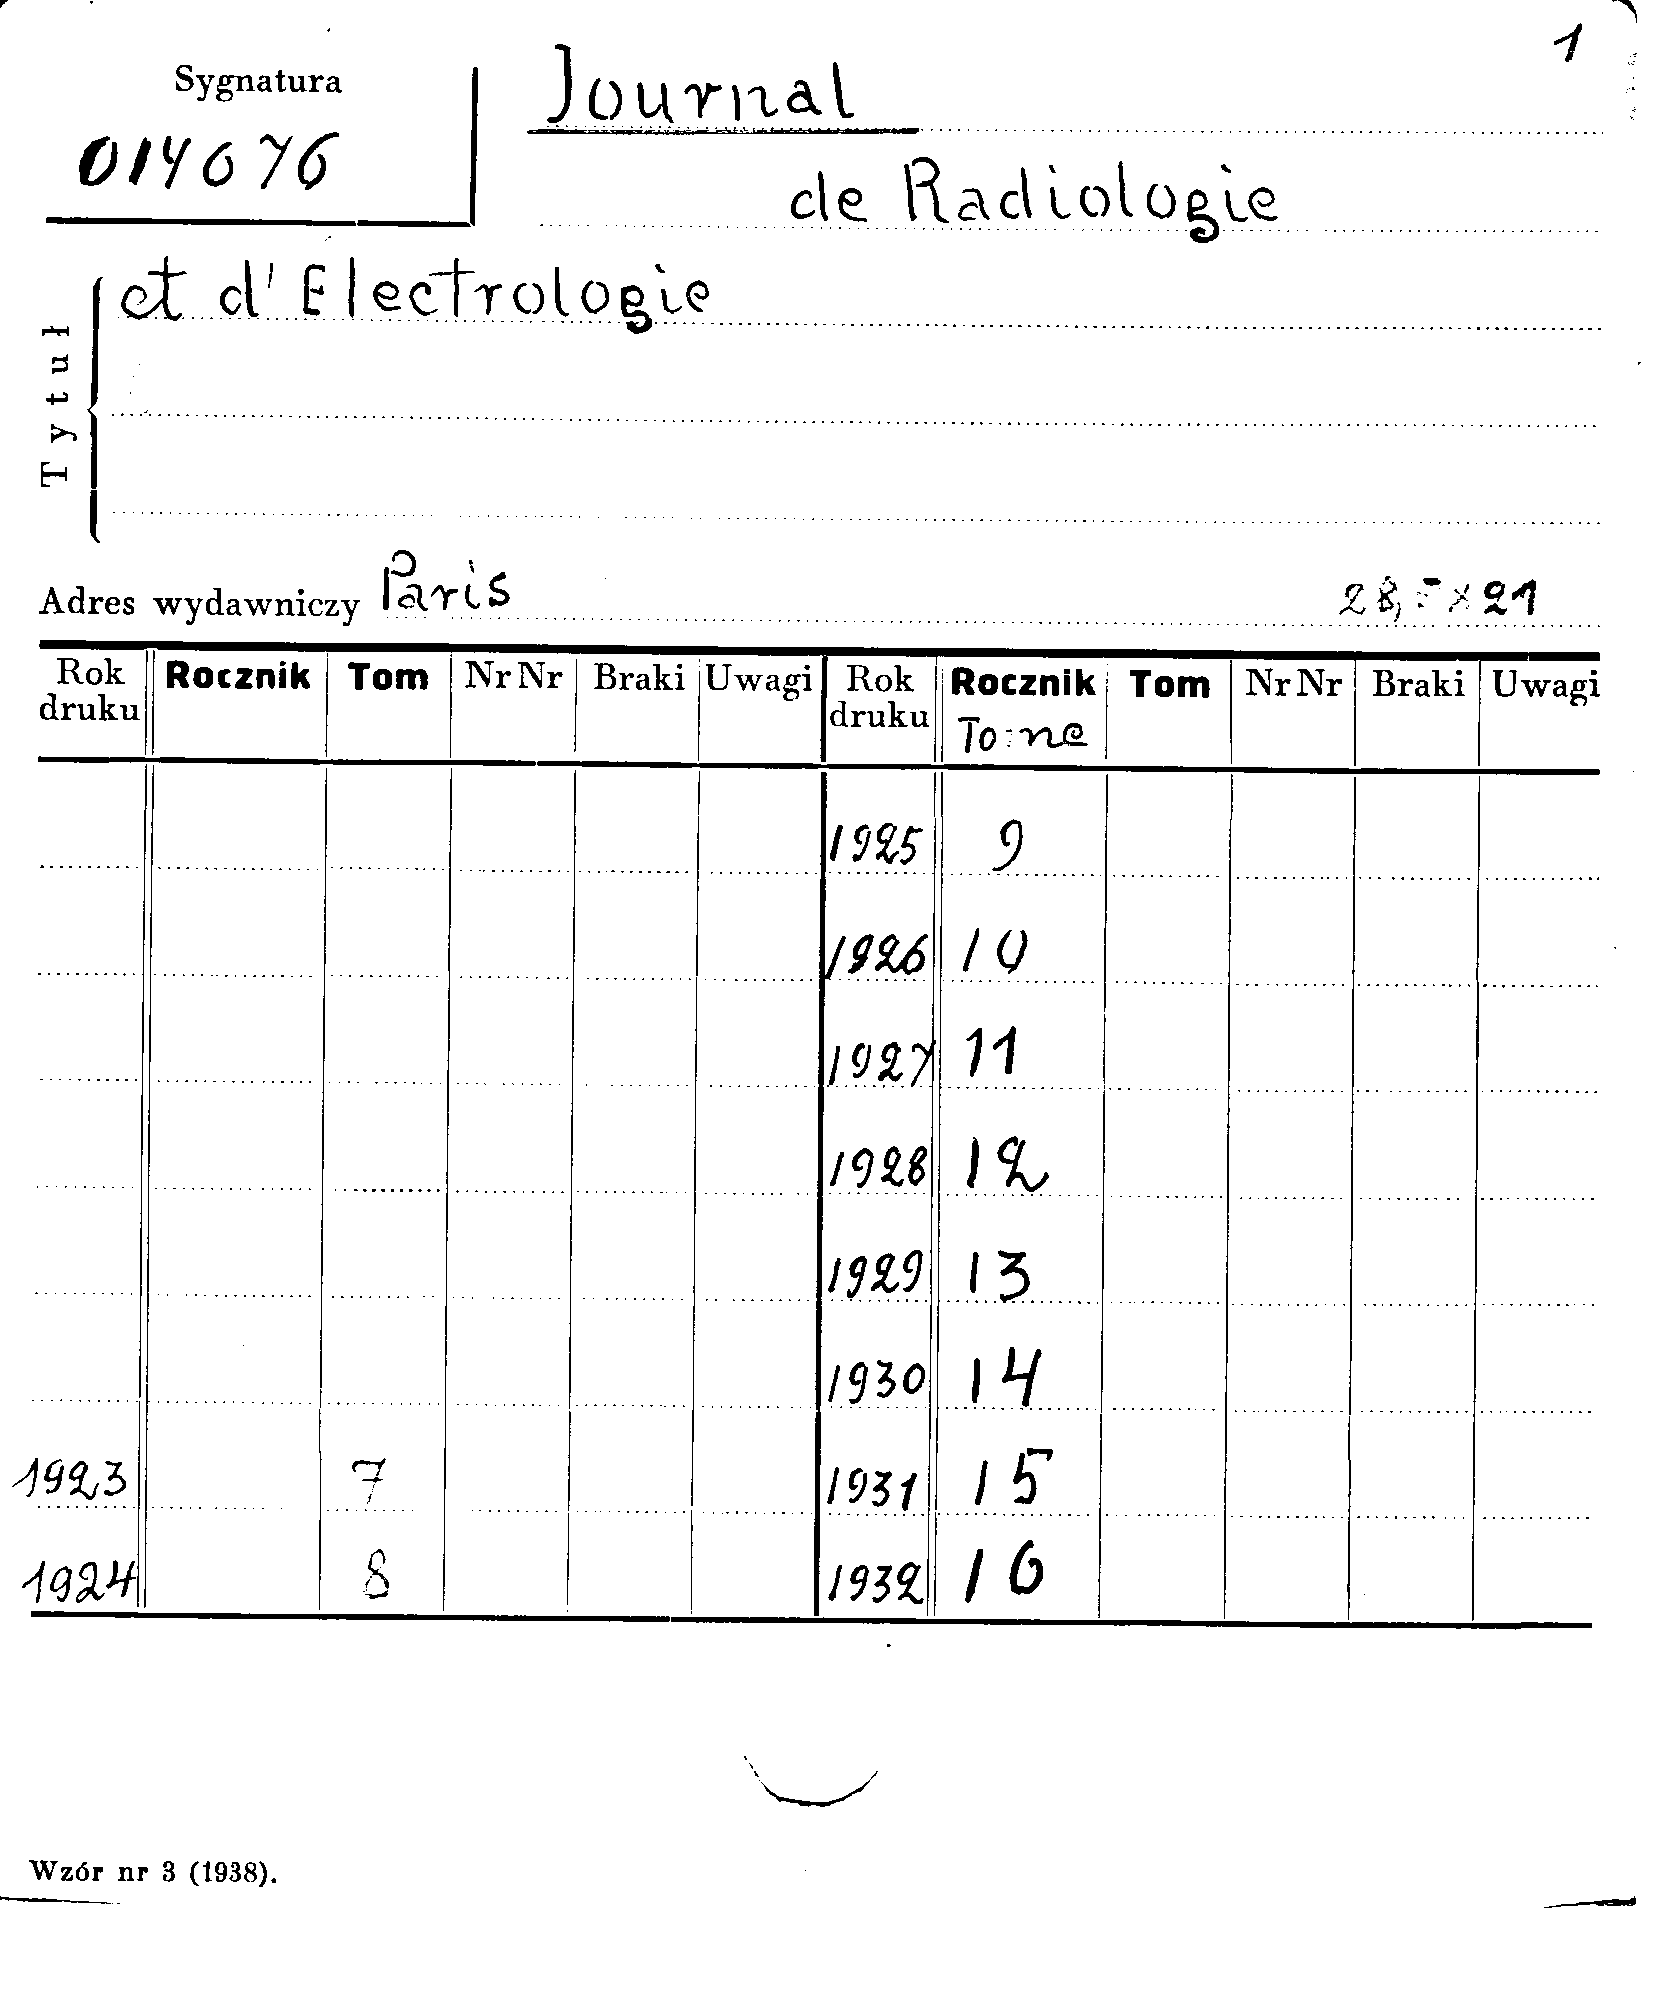 1
Sygnatura
014676
Journal
de Radiologie
et d'Electrologie
Tytuł
Adres wydawniczy Paris 28,5 x 21
Rok druku Rocznik Tom Nr Nr Braki Uwagi Rok druku Rocznik Tom Nr Nr Braki Uwagi
Tome
1925 9
1926 10
1927 11
1928 12
1929 13
1930 14
1923 7 1931 15
1924 8 1932 16
Wzór nr 3 (1938).